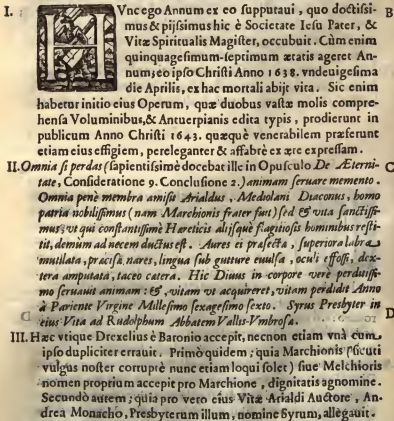 I. HVnc ego Annum ex eo supputaui, quo doctissi- B
mus & pijssimus hic è Societate Iesu Pater, &
Vitæ Spiritualis Magister, occubuit. Cùm enim
quinquagesimum-septimum ætatis ageret An-
num; eo ipso Christi Anno 1638. vndeuigesima
die Aprilis, ex hac mortali abijt vita. Sic enim
habetur initio eius Operum, quæ duobus vastæ molis compre-
hensa Voluminibus, & Antuerpianis edita typis, prodierunt in
publicum Anno Christi 1643. quæquè venerabilem præferunt
etiam eius effigiem, pereleganter & affabrè ex ære expressam.
II. Omnia si perdas (sapientissimè docebat ille in Opusculo De Æterni- C
tate, Consideratione 9. Conclusione 2.) animam seruare memento.
Omnia penè membra amisit Arialdus, Mediolani Diaconus, homo
patria nobilissimus (nam Marchionis frater fuit) sed & vita sanctissi-
mus; vt qui constantissimè Hæreticis alijsque flagitiosis hominibus resti-
tit, demùm ad necem ductus est. Aures ei præsecta, superiora labra
mutilata, præcisa nares, lingua sub gutture euulsa, oculi effossi, dex-
tera amputata, taceo catera. Hic Diuus in corpore verè perditissi-
mo seruauit animam: &, vitam vt acquireret, vitam perdidit Anno
à Pariente Virgine Millesimo sexagesimo sexto. Syrus Presbyter in
eius Vita ad Rudolphum Abbatem Vallis-Vmbrosa. D
III. Hæc vtique Drexelius è Baronio accepit, necnon etiam vnà cum
ipso dupliciter errauit. Primò quidem; quia Marchionis (sicuti
vulgus noster corruptè nunc etiam loqui solet) siue Melchioris
nomen proprium accepit pro Marchione, dignitatis agnomine.
Secundò autem; quia pro vero eius Vitæ Arialdi Auctore, An-
drea Monacho, Presbyterum illum, nomine Syrum, allegauit.